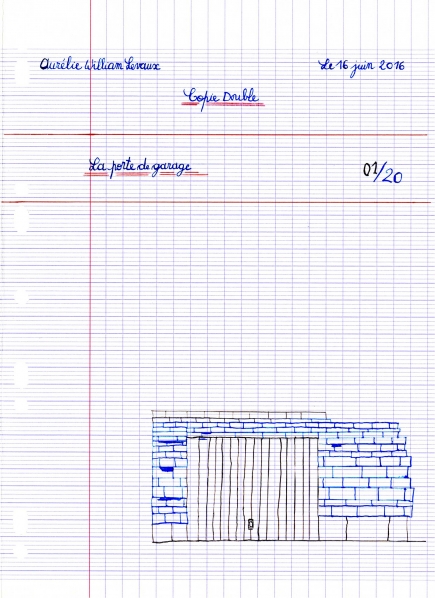 Aurélie William Levaux
Le 16 juin 2016
Copie Double
La porte de garage
01/20